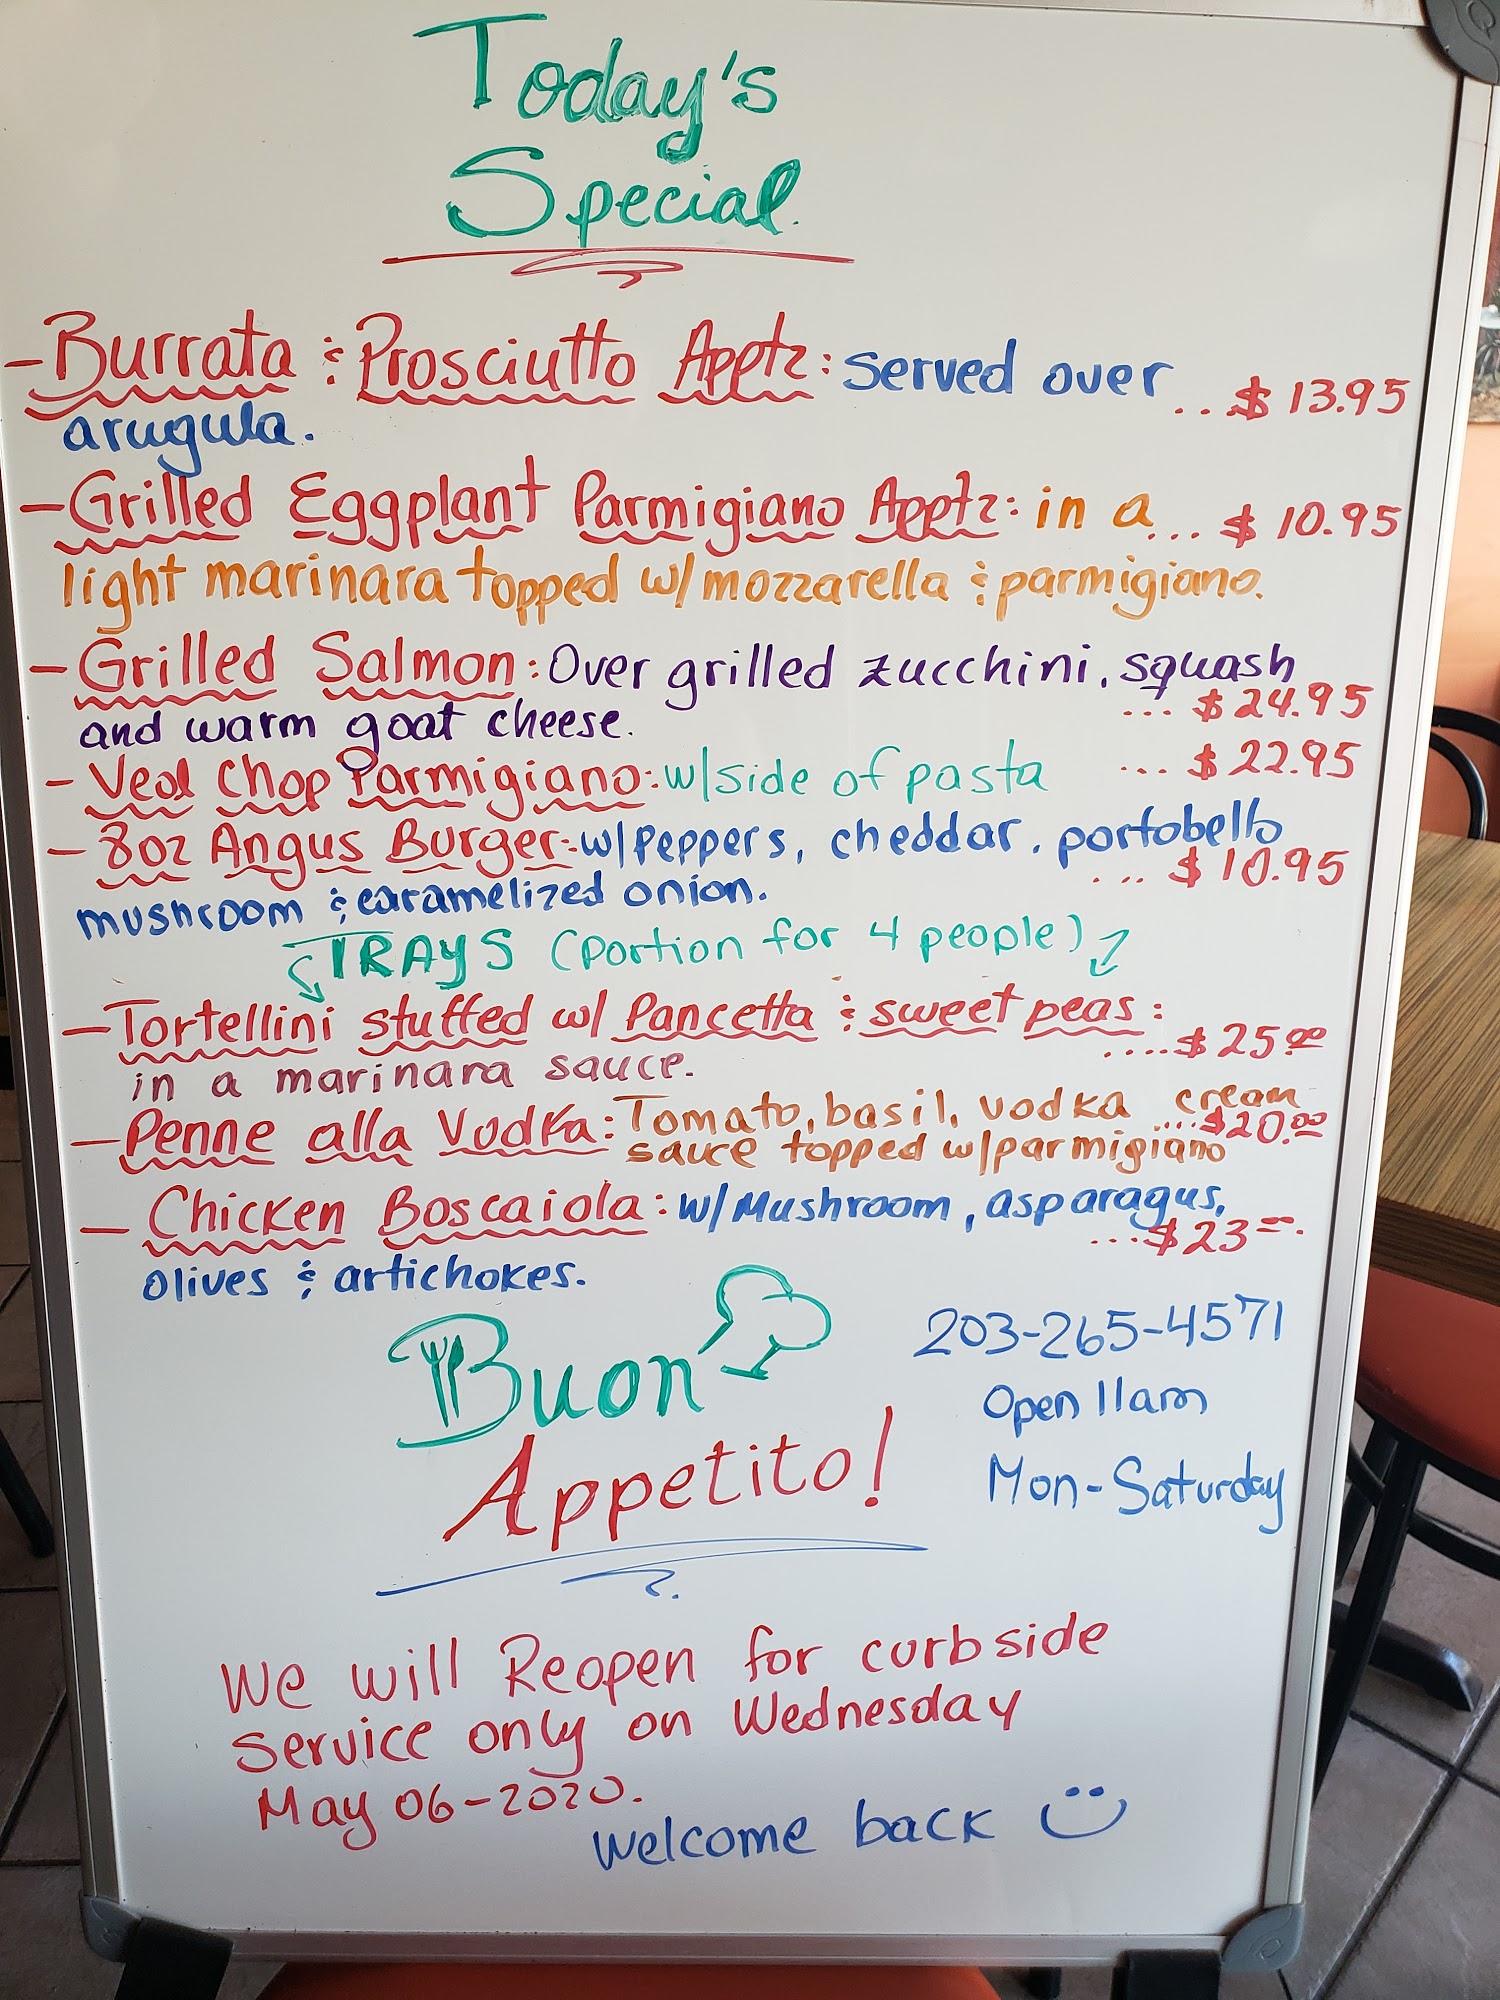 Today's
Special
- Burrata & Prosciutto Apptz: Served over
arugula. ... $ 13.95
- Grilled Eggplant Parmigiano Apptz: in a ... $ 10.95
light marinara topped w/ mozzarella & parmigiano.
- Grilled Salmon: Over grilled zucchini, squash
and warm goat cheese. ... $ 24.95
- Veal Chop Parmigiano: w/side of pasta ... $ 22.95
- 8oz Angus Burger: w/Peppers, cheddar, portobello
mushroom & caramelized onion. ... $ 10.95
TRAYS (Portion for 4 people)
- Tortellini stuffed w/ Pancetta & sweet peas:
in a marinara sauce. .... $ 25.00
- Penne alla Vodka: Tomato, basil, vodka cream
sauce topped w/parmigiano .... $20.00
- Chicken Boscaiola: w/Mushroom, asparagus,
olives & artichokes. ... $23
Buon
Appetito!
203-265-4571
Open 11am
Mon-Saturday
We will Reopen for curbside
service only on Wednesday
May 06-2020.
Welcome back